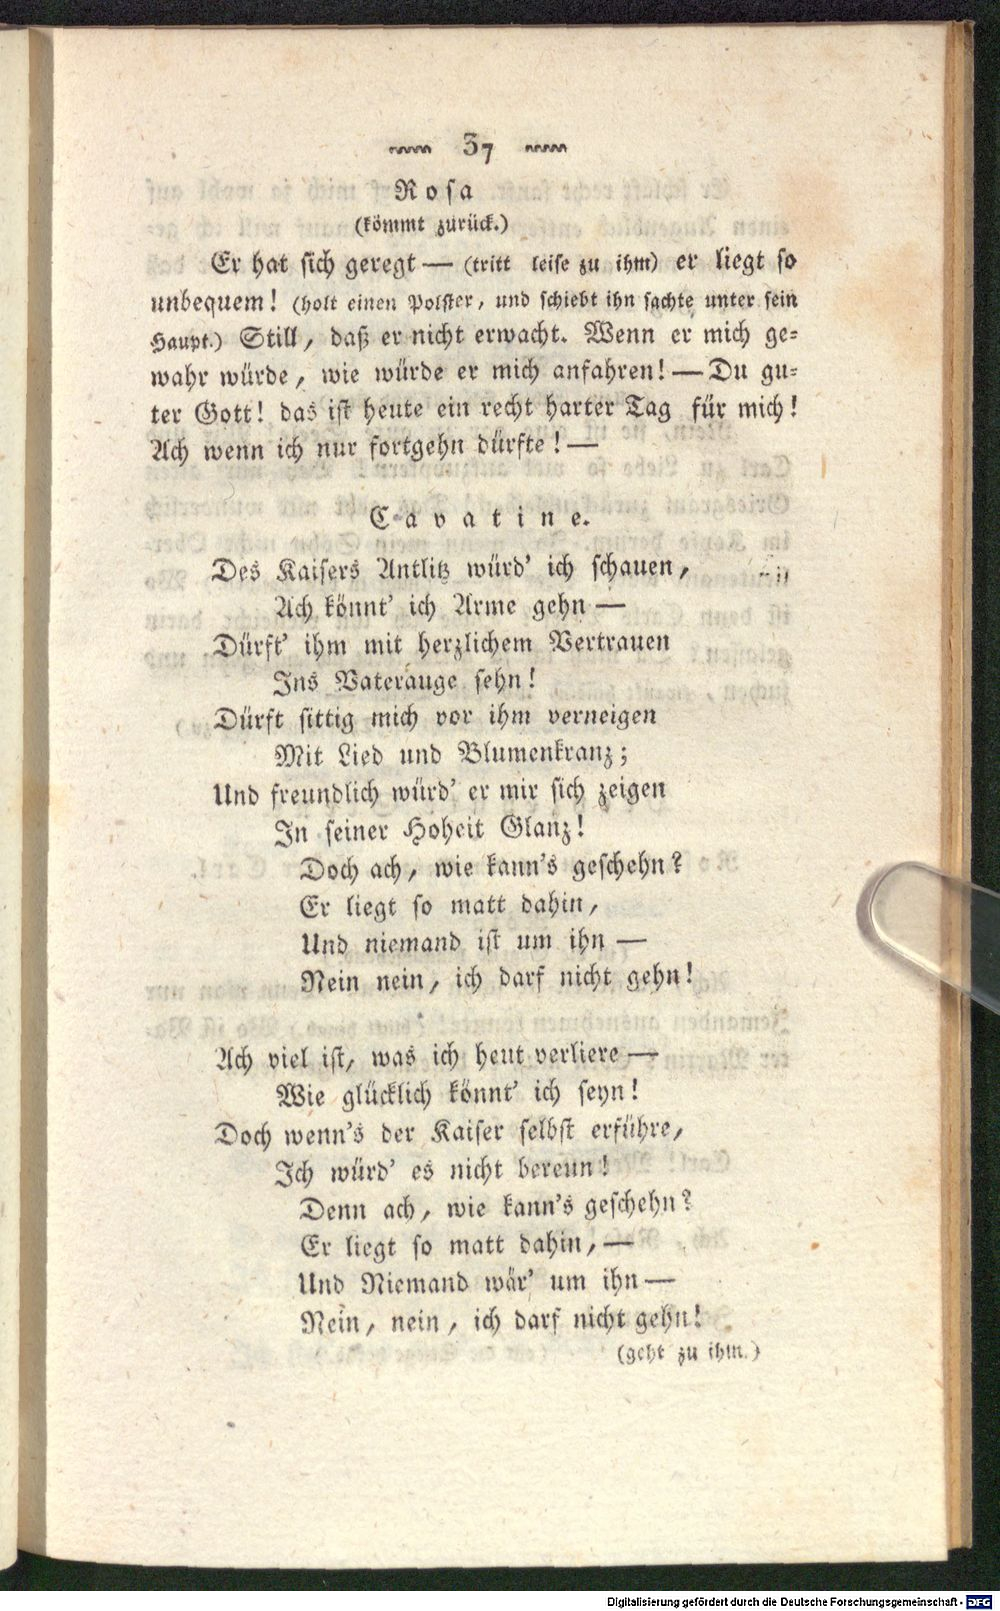 37
Rosa
(kömmt zurück.)
Er hat sich geregt — (tritt leise zu ihm) er liegt so
unbequem! (holt einen Polster, und schiebt ihn sachte unter sein
Haupt.) Still, daß er nicht erwacht. Wenn er mich ge-
wahr würde, wie würde er mich anfahren! — Du gu-
ter Gott! das ist heute ein recht harter Tag für mich!
Ach wenn ich nur fortgehn dürfte! —
Cavatine.
Des Kaisers Antlitz würd' ich schauen,
Ach könnt' ich Arme gehn —
Dürft' ihm mit herzlichem Vertrauen
Ins Vaterauge sehn!
Dürft sittig mich vor ihm verneigen
Mit Lied und Blumenkranz;
Und freundlich würd' er mir sich zeigen
In seiner Hoheit Glanz!
Doch ach, wie kann's geschehn?
Er liegt so matt dahin,
Und niemand ist um ihn —
Nein nein, ich darf nicht gehn!
Ach viel ist, was ich heut verliere —
Wie glücklich könnt' ich seyn!
Doch wenn's der Kaiser selbst erführe,
Ich würd' es nicht bereun!
Denn ach, wie kann's geschehn?
Er liegt so matt dahin, —
Und Niemand wär' um ihn —
Nein, nein, ich darf nicht gehn!
(geht zu ihm.)
Digitalisierung gefördert durch die Deutsche Forschungsgemeinschaft - DFG